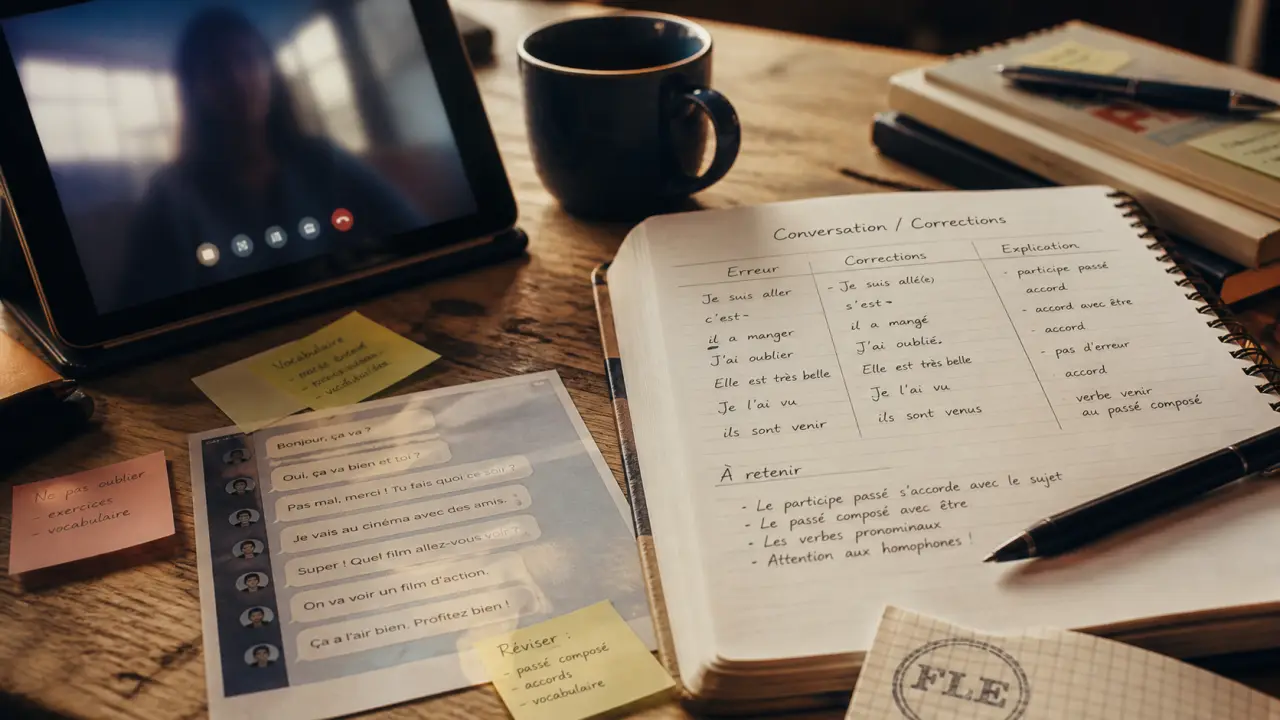 Vocabulaire
Ne pas oublier
- exercices
- vocabulaire
Bonjour, ça va ?
Oui, ça va bien et toi ?
Pas mal, merci ! Tu fais quoi ce soir ?
Je vais au cinéma avec des amis.
Super ! Quel film allez-vous voir ?
On va voir un film d'action.
Ça a l'air bien. Profitez bien !
Réviser :
- passé composé
- accords
- vocabulaire
Conversation / Corrections
Erreur
Je suis aller
c'est-
il a manger
J'ai oublier
Elle est très belle
Je l'ai vu
ils sont venir
Corrections
- Je suis allé(e)
s'est-
il a mangé
J'ai oublié.
Elle est très belle
Je l'ai vu
ils sont venus
Explication
- participe passé
accord
- accord avec être
- accord
- pas d'erreur
accord
verbe venir
au passé composé
À retenir
- Le participe passé s'accorde avec le sujet
- Le passé composé avec être
- Les verbes pronominaux
- Attention aux homophones !
FLE